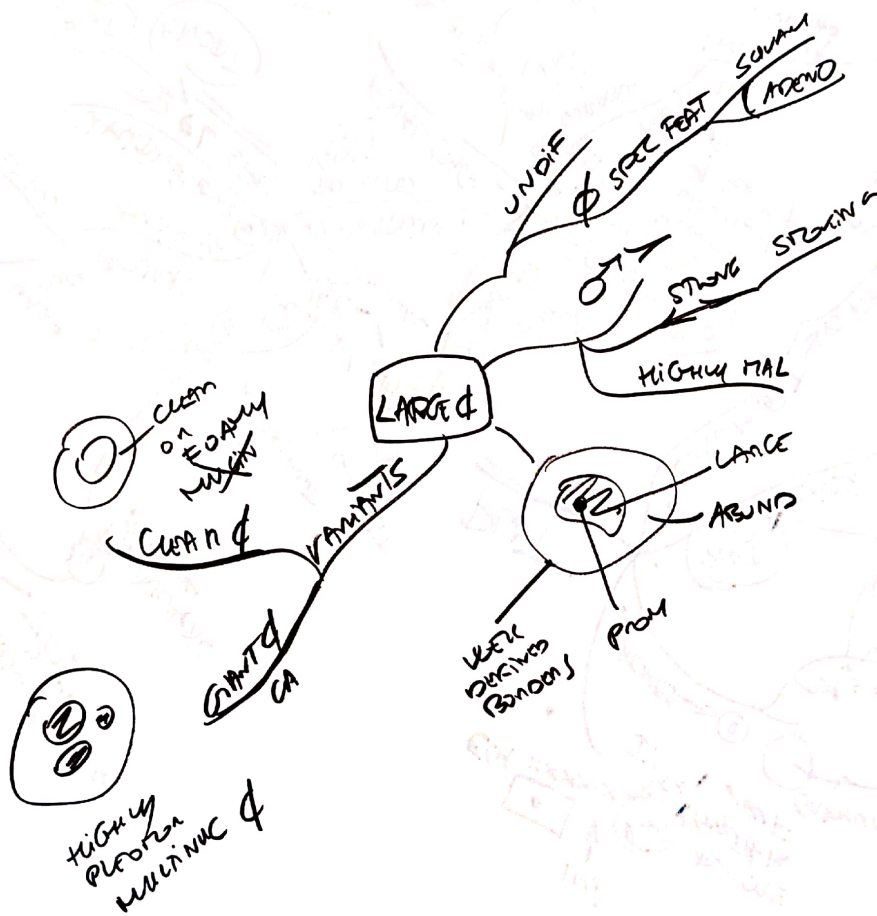 LARGE ¢
UNDIF
∅ SPEC FEAT
SQUAM
ADENO
♂
STRONG SMOKING
HIGHLY MAL
LARGE
ABUND
PROM
WELL
DEFINED
BORDERS
VARIANTS
CLEAR ¢
CLEAR
OR
FOAMY
MUCIN
GIANT ¢
CA
HIGHLY
PLEOMOR
MULTINUC ¢